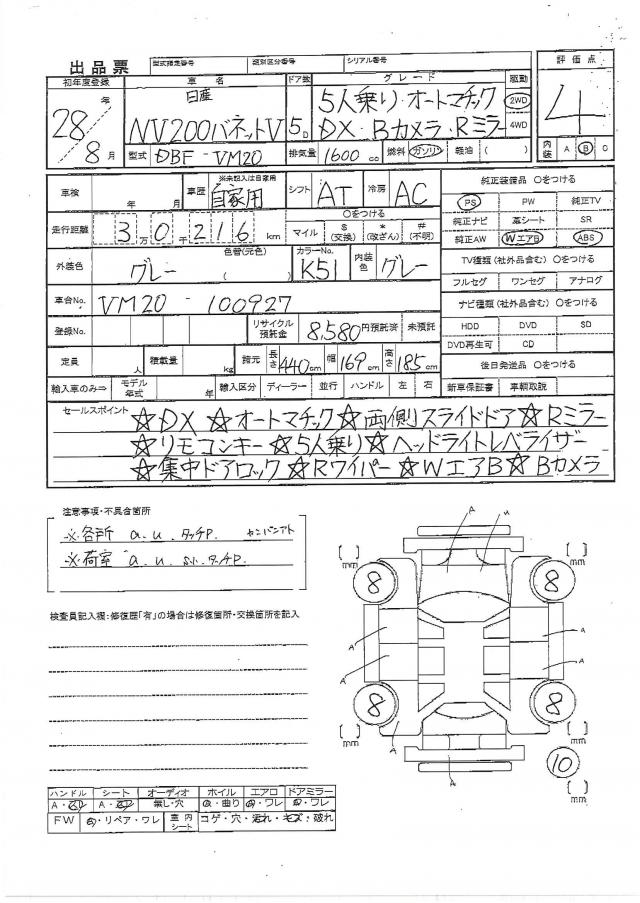 出品票 型式指定番号 類別区分番号 シリアル番号
初年度登録 車名 ドア数 グレード 駆動 評価点
28年 日産 5人乗り・オートマチック 2WD 4
8月 NV200バネットV 5D DX・Bカメラ・Rミラー 4WD
型式 DBF-VM20 排気量 1600cc 燃料 ガソリン 軽油 ( ) 内装 A B C
車検 年 月 車歴 ※未記入は自家用 自家用 シフト AT 冷房 AC 純正装備品 〇をつける
PS PW 純正TV
走行距離 3万0千216km 〇をつける 純正ナビ 革シート SR
マイル $(交換) *(改ざん) #(不明) 純正AW WエアB ABS
外装色 グレー 色替(元色) ( ) カラーNo. K51 内装色 グレー TV種類(社外品含む) 〇をつける
フルセグ ワンセグ アナログ
車台No. VM20-100927 ナビ種類(社外品含む) 〇をつける
登録No. リサイクル預託金 8,580円預託済 未預託 HDD DVD SD
DVD再生可 CD
定員 人 積載量 kg 諸元 長さ440cm 幅169cm 高さ185cm 後日発送品 〇をつける
輸入車のみ⇒ モデル年式 年 輸入区分 ディーラー 並行 ハンドル 左 右 新車保証書 車輌取説
セールスポイント ☆DX ☆オートマチック☆両側スライドドア☆Rミラー
☆リモコンキー☆5人乗り☆ヘッドライトレベライザー
☆集中ドアロック☆Rワイパー☆WエアB☆Bカメラ
注意事項・不具合箇所
※各所 a.u.タッチP.
※荷室 a.u.
検査員記入欄:修復歴「有」の場合は修復箇所・交換箇所を記入
A u
[ ] mm [ ] mm
8 8
A A
A A
8 8
A A
[ ] mm [ ] mm
10
[ ] mm
ハンドル シート オーディオ ホイル エアロ ドアミラー
無し・穴 ・曲り ・ワレ ・ワレ
FW ・リペア・ワレ 室内シート コゲ・穴・汚れ・キズ・破れ